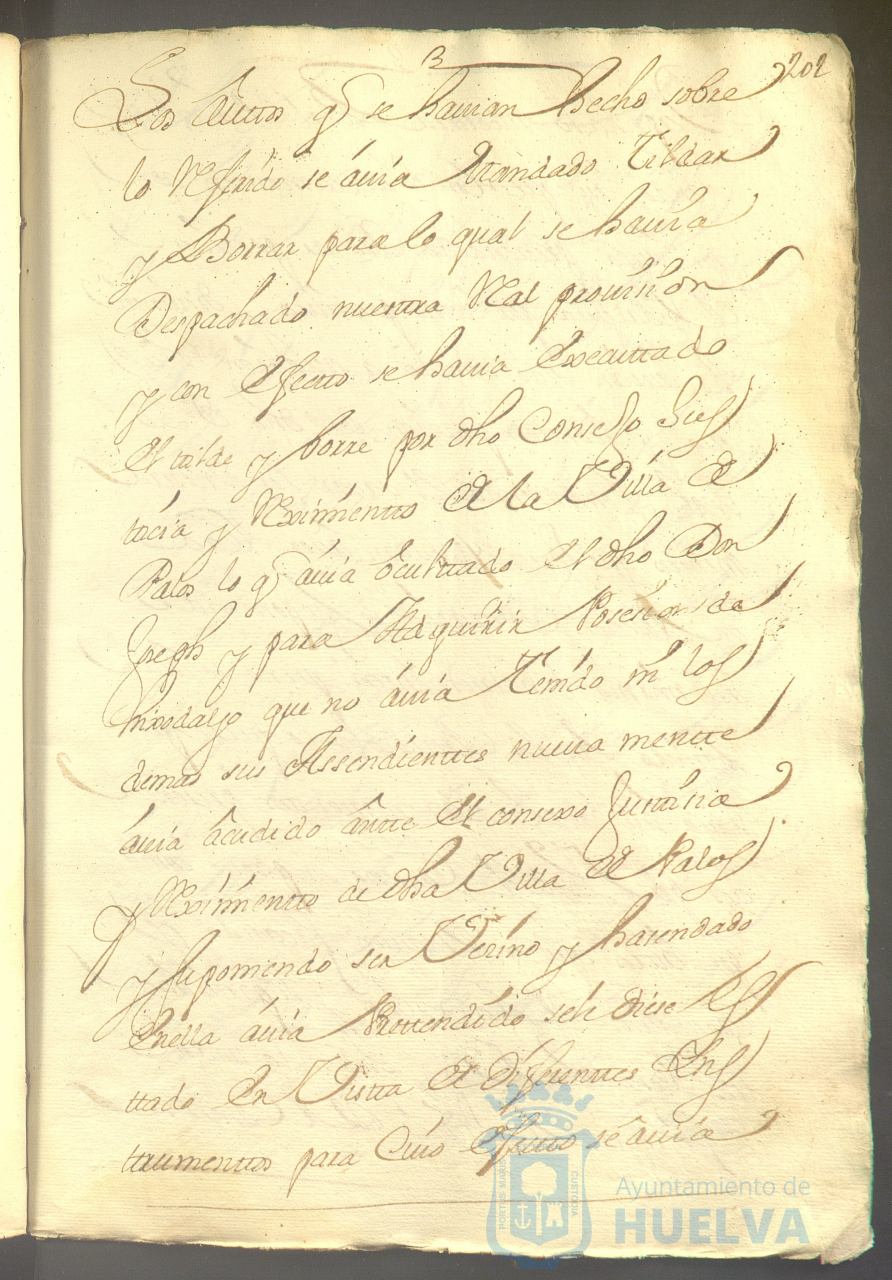 3
202
Los auttos q̃ se havian hecho sobre
lo Referido se avia Mandado tildar
y Borrar para lo qual se havia
Despachado nuestra Real provision
y con Efectto se havia Executtado
el tilde y borre por dho Consejo Jus
ticia y Reximientto de la Villa de
Palos lo q̃ avia ocultado el dho Don
Joseph y para Adquirir Posesion de
hixodalgo que no avia Tenido ni los
demas sus Assendienttes nueva mentte
avia acudido antte el consexo Justisia
y Reximientto de dha Villa de Palos
y suponiendo ser Vezino y hasendado
Enella avia Prettendido sele diese Es
ttado En Vistta de diferenttes Ins
trumenttos para Cuio Efectto se avia
PORTUS MARIS
CUSTODIA
Ayuntamiento de
HUELVA